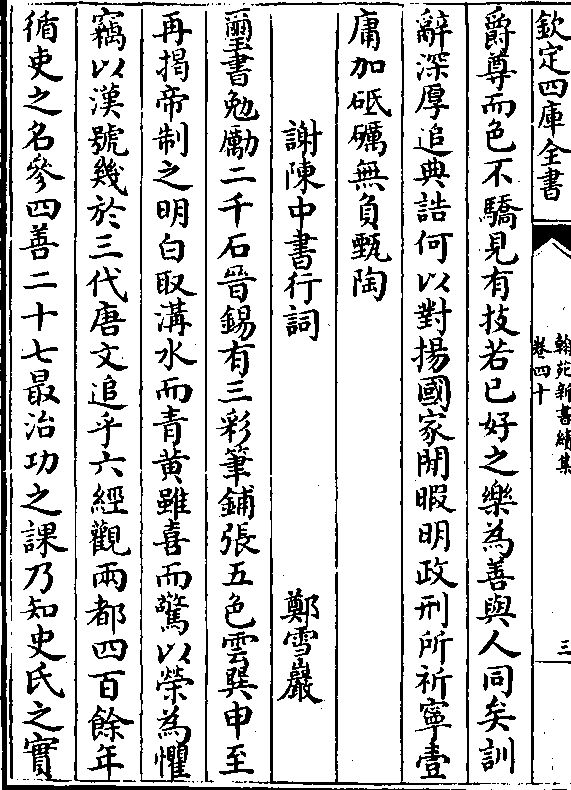 欽定四庫全書
翰苑新書續集
卷四十
三
爵尊而色不驕見有技若已好之樂為善與人同矣訓
辭深厚追典誥何以對揚國家閒暇明政刑所祈寧壹
庸加砥礪無負甄陶
謝陳中書行詞
鄭雪巖
璽書勉勵二千石晉錫有三彩筆鋪張五色雲巽申至
再揭帝制之明白取溝水而青黃雖喜而驚以榮為懼
竊以漢號幾於三代唐文追乎六經觀兩都四百餘年
循吏之名參四善二十七最治功之課乃知史氏之實